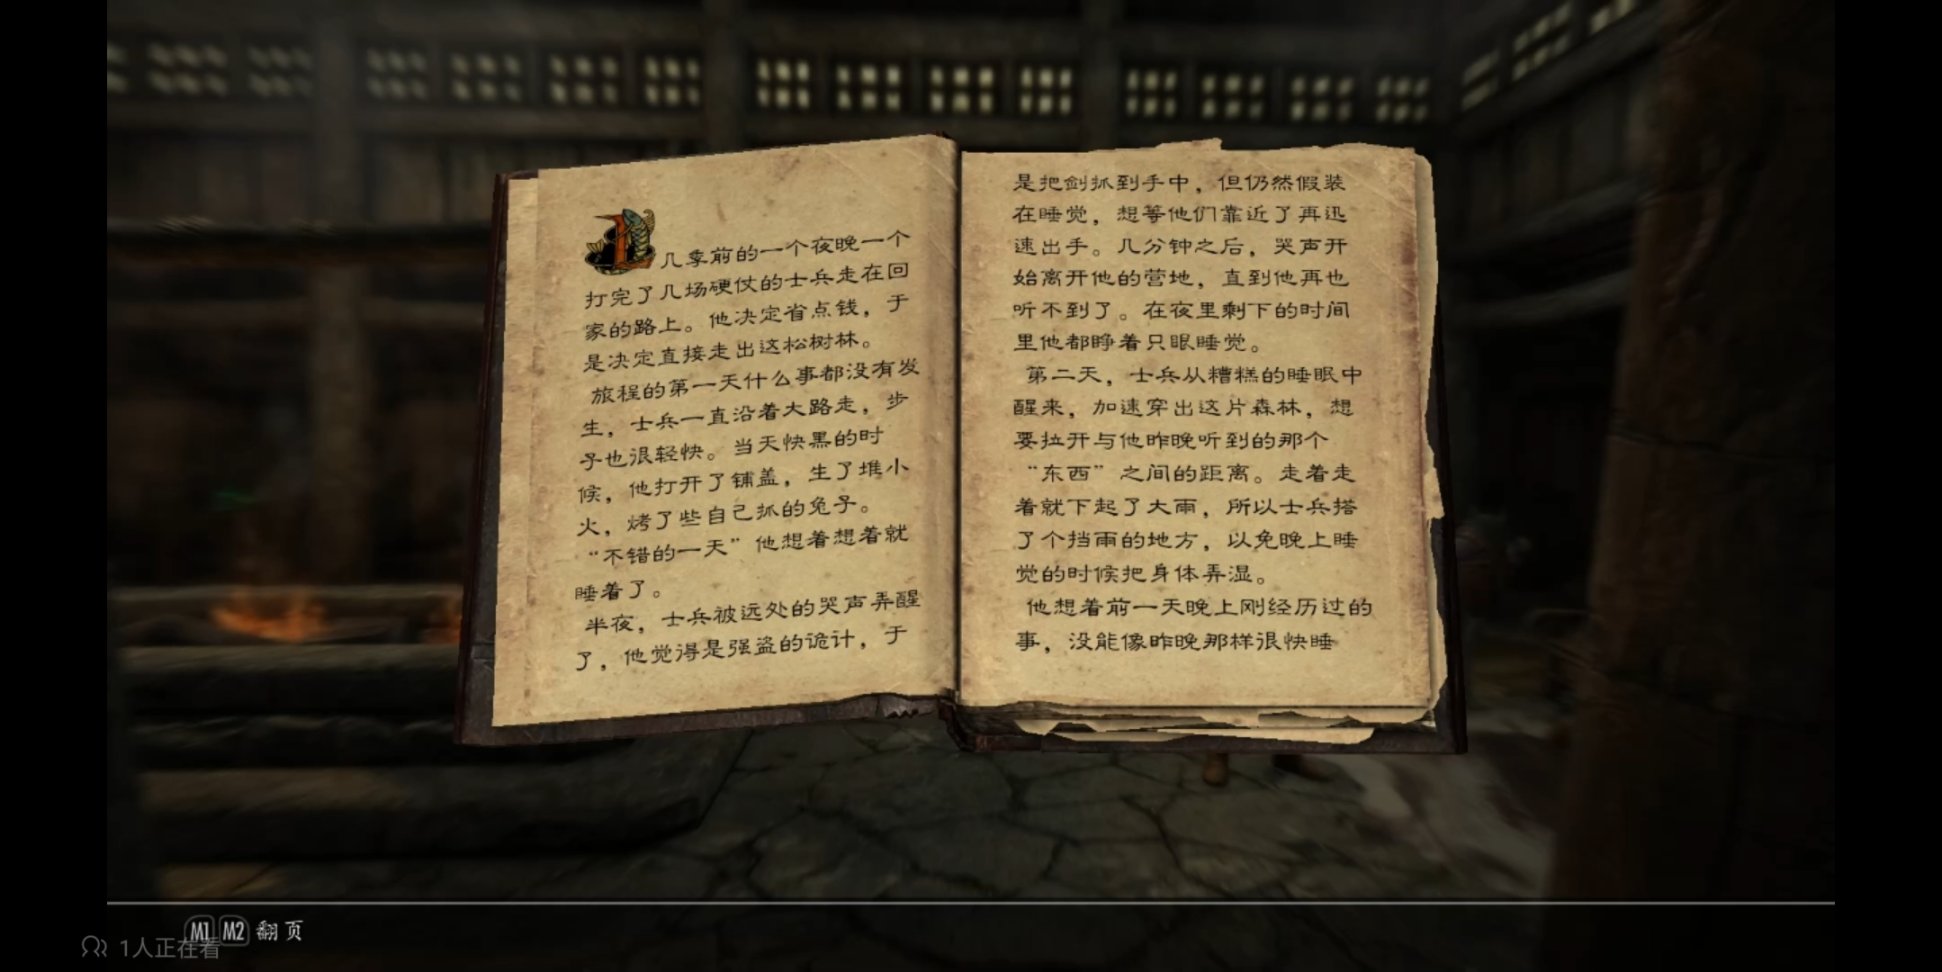 几季前的一个夜晚一个
打完了几场硬仗的士兵走在回
家的路上。他决定省点钱，于
是决定直接走出这松树林。
旅程的第一天什么事都没有发
生，士兵一直沿着大路走，步
子也很轻快。当天快黑的时
候，他打开了铺盖，生了堆小
火，烤了些自己抓的兔子。
“不错的一天”他想着想着就
睡着了。
半夜，士兵被远处的哭声弄醒
了，他觉得是强盗的诡计，于
是把剑抓到手中，但仍然假装
在睡觉，想等他们靠近了再迅
速出手。几分钟之后，哭声开
始离开他的营地，直到他再也
听不到了。在夜里剩下的时间
里他都睁着只眼睡觉。
第二天，士兵从糟糕的睡眠中
醒来，加速穿出这片森林，想
要拉开与他昨晚听到的那个
“东西”之间的距离。走着走
着就下起了大雨，所以士兵搭
了个挡雨的地方，以免晚上睡
觉的时候把身体弄湿。
他想着前一天晚上刚经历过的
事，没能像昨晚那样很快睡
M1 M2 翻页
1人正在看